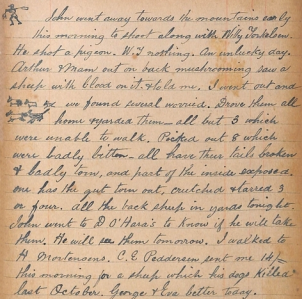 John went away towards the mountains early
this morning to shoot along with Willy
He shot a pigeon. W.J nothing. An unlucky day.
Arthur & Mam out on back mushrooming saw a
sheep with blood on it & told me. I went out and
we found several worried. Drove them all
home & yarded them - all but 3 which
were unable to walk. Picked out 8 which
were badly bitten - all have their tails broken
& badly torn, and part of the inside exposed.
one has the gut torn out, crutched & tarred 3
or four. All the back sheep in yards tonight.
John went to D O'Hara's to know if he will take
them. He will see them tomorrow. I walked to
H. Mortensens. C.E Peddersen sent me 14/=
this morning for a sheep which his dogs killed
last October. George & Eva better today.